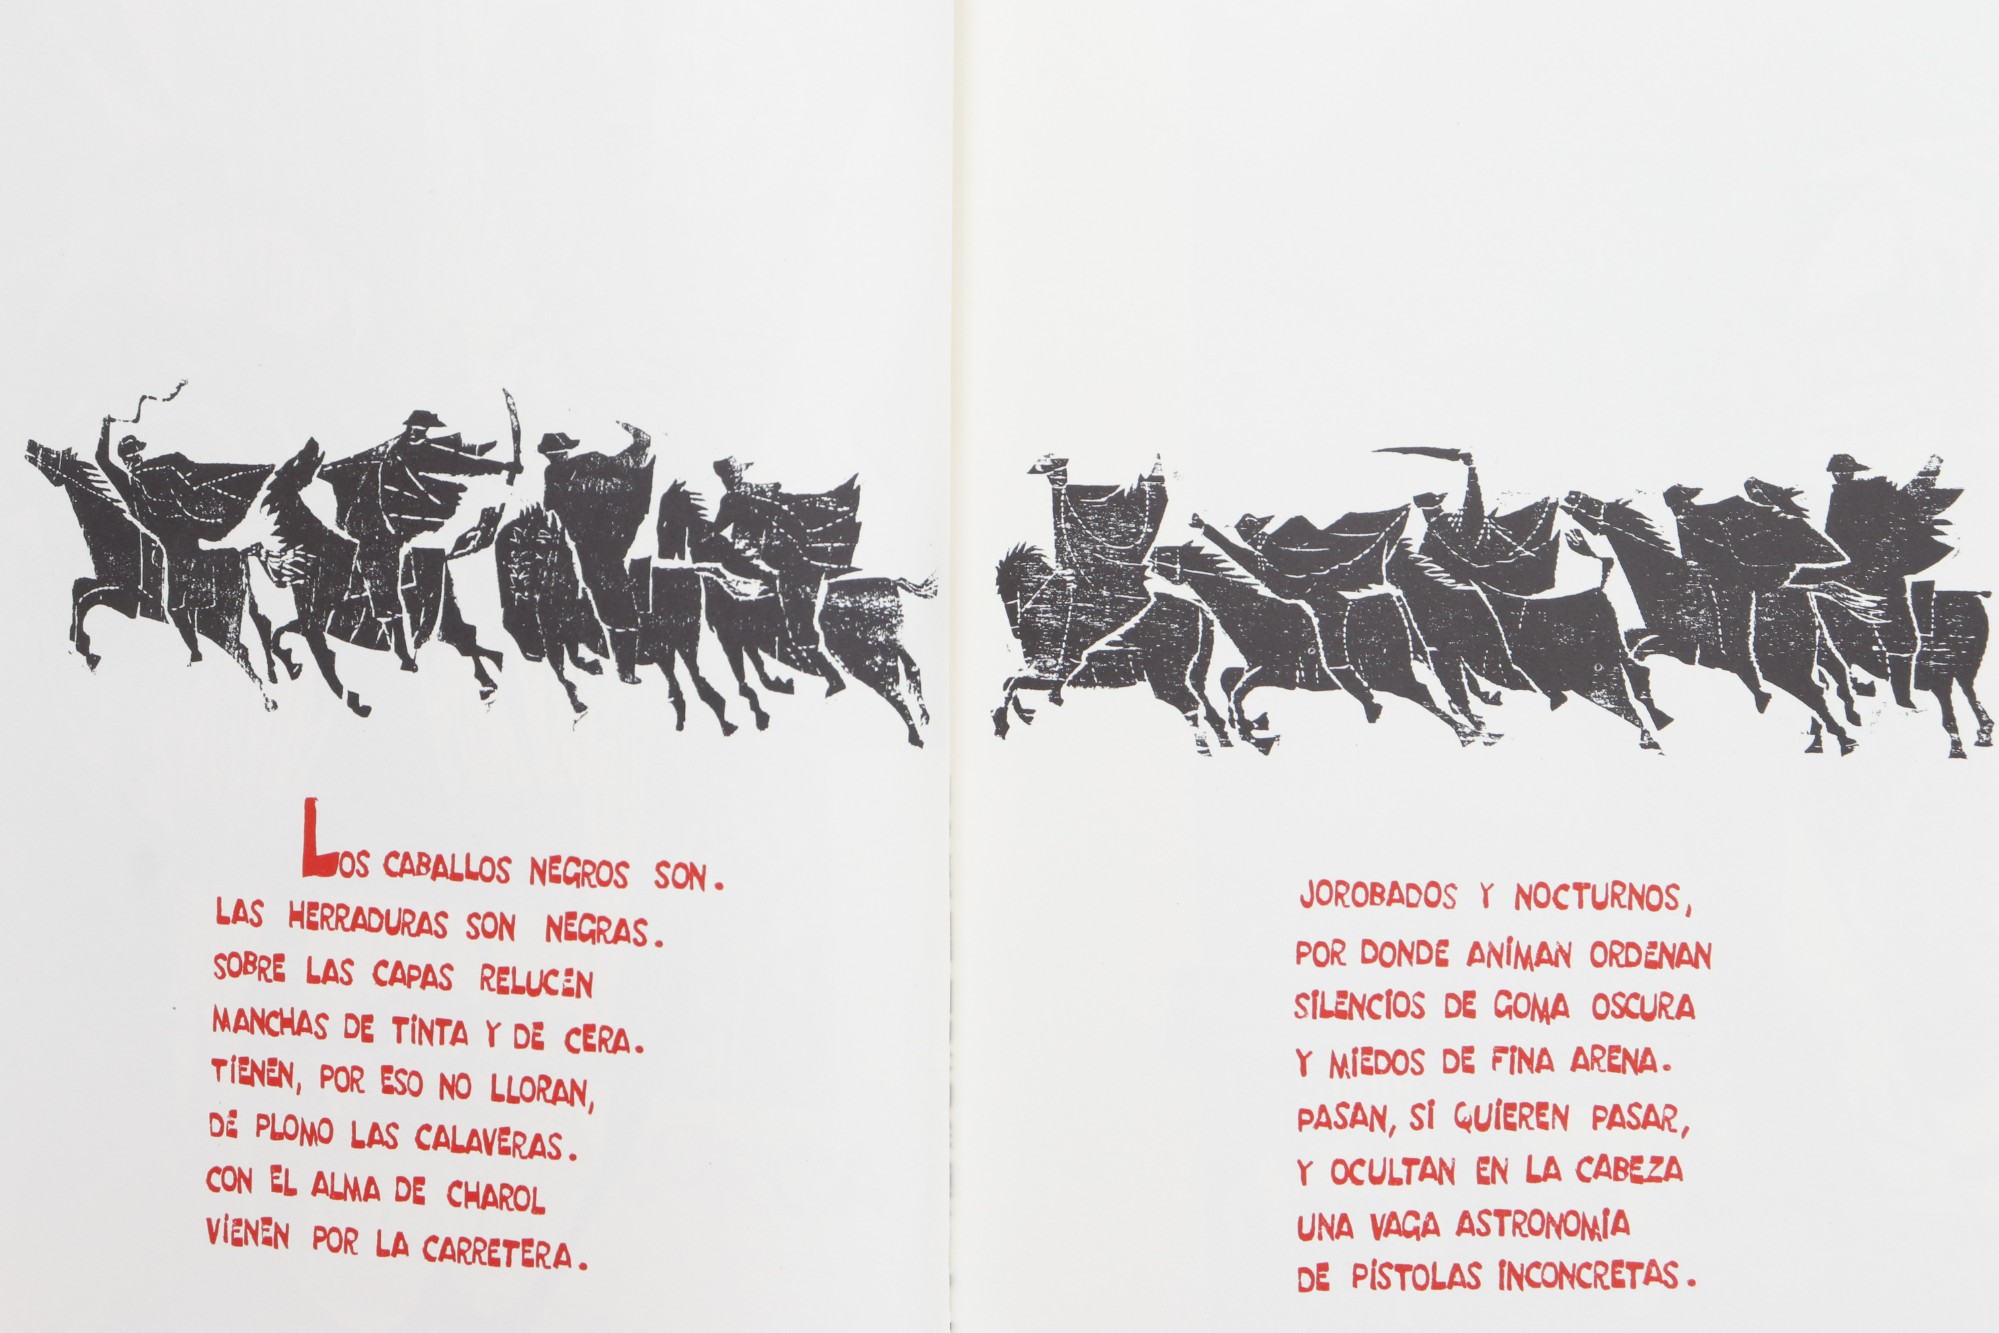 LOS CABALLOS NEGROS SON.
LAS HERRADURAS SON NEGRAS.
SOBRE LAS CAPAS RELUCEN
MANCHAS DE TINTA Y DE CERA.
TIENEN, POR ESO NO LLORAN,
DE PLOMO LAS CALAVERAS.
CON EL ALMA DE CHAROL
VIENEN POR LA CARRETERA.
JOROBADOS Y NOCTURNOS,
POR DONDE ANIMAN ORDENAN
SILENCIOS DE GOMA OSCURA
Y MIEDOS DE FINA ARENA.
PASAN, SI QUIEREN PASAR,
Y OCULTAN EN LA CABEZA
UNA VAGA ASTRONOMIA
DE PISTOLAS INCONCRETAS.